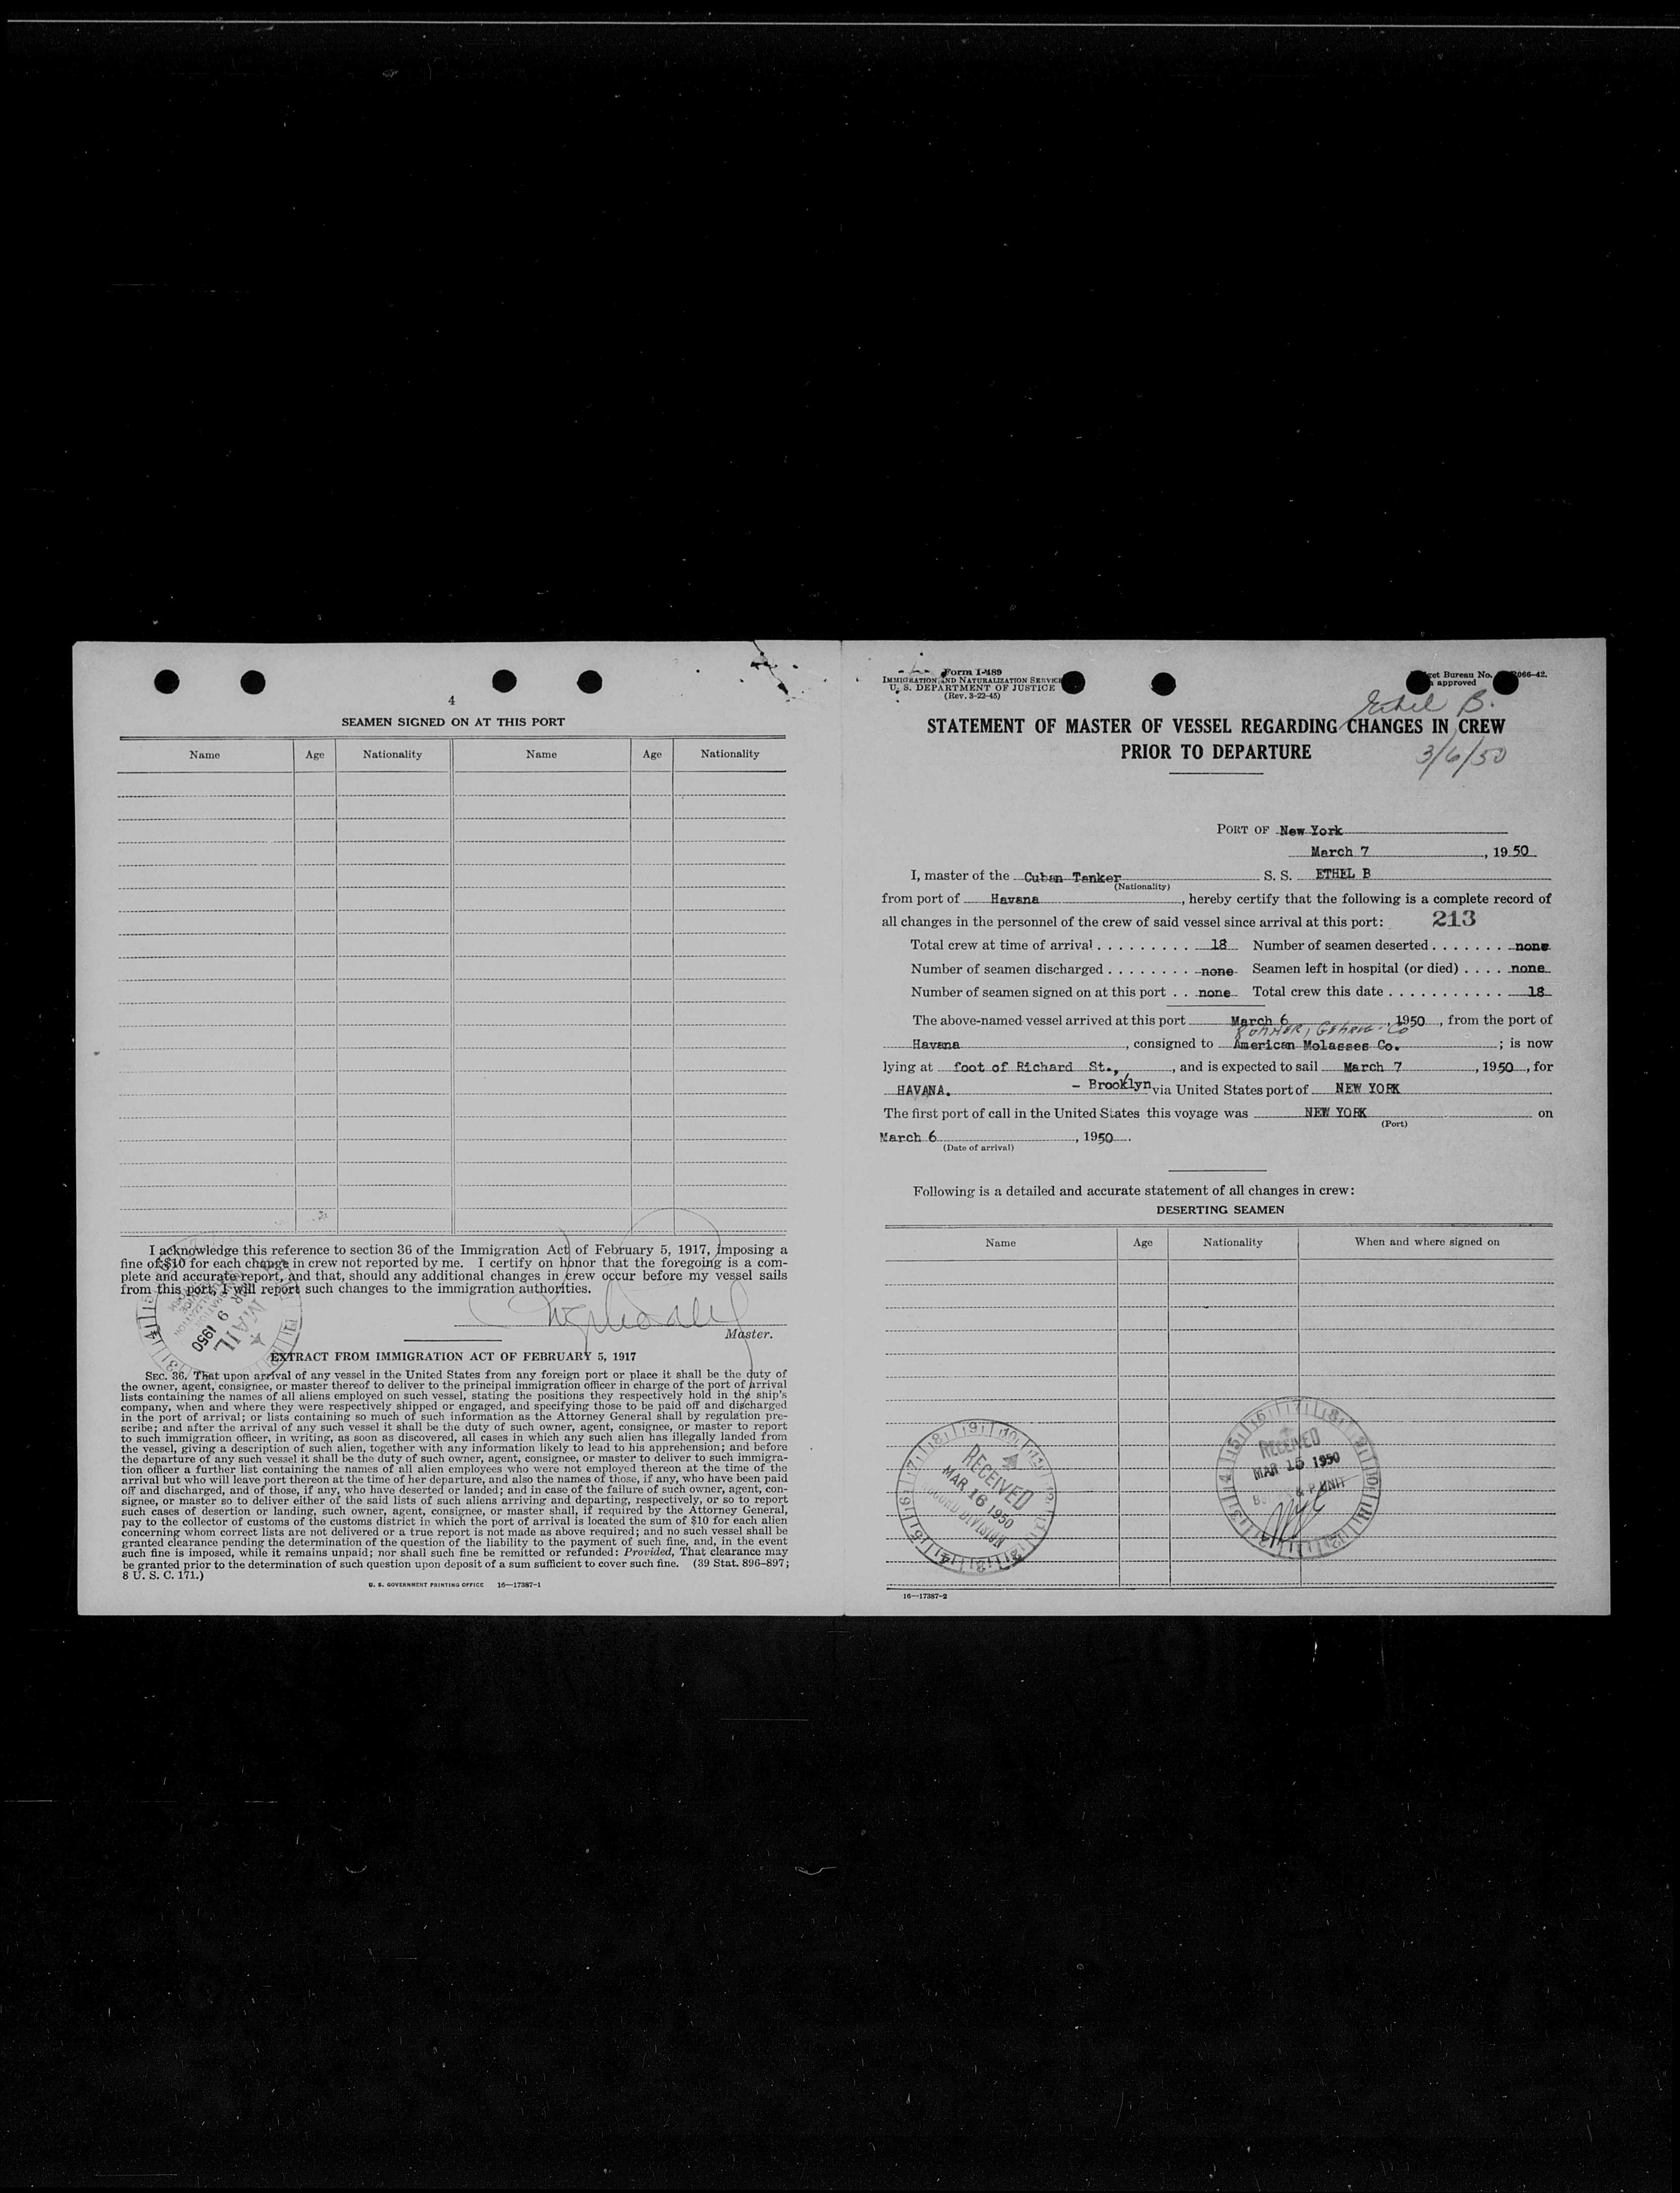 4
SEAMEN SIGNED ON AT THIS PORT
Name Age Nationality Name Age Nationality
I acknowledge this reference to section 36 of the Immigration Act of February 5, 1917, imposing a
fine of $10 for each change in crew not reported by me. I certify on honor that the foregoing is a com-
plete and accurate report, and that, should any additional changes in crew occur before my vessel sails
from this port, I will report such changes to the immigration authorities.
Master.
MAIL
MAR 9 1950
EXTRACT FROM IMMIGRATION ACT OF FEBRUARY 5, 1917
SEC. 36. That upon arrival of any vessel in the United States from any foreign port or place it shall be the duty of
the owner, agent, consignee, or master thereof to deliver to the principal immigration officer in charge of the port of arrival
lists containing the names of all aliens employed on such vessel, stating the positions they respectively hold in the ship's
company, when and where they were respectively shipped or engaged, and specifying those to be paid off and discharged
in the port of arrival; or lists containing so much of such information as the Attorney General shall by regulation pre-
scribe; and after the arrival of any such vessel it shall be the duty of such owner, agent, consignee, or master to report
to such immigration officer, in writing, as soon as discovered, all cases in which any such alien has illegally landed from
the vessel, giving a description of such alien, together with any information likely to lead to his apprehension; and before
the departure of any such vessel it shall be the duty of such owner, agent, consignee, or master to deliver to such immigra-
tion officer a further list containing the names of all alien employees who were not employed thereon at the time of the
arrival but who will leave port thereon at the time of her departure, and also the names of those, if any, who have been paid
off and discharged, and of those, if any, who have deserted or landed; and in case of the failure of such owner, agent, con-
signee, or master so to deliver either of the said lists of such aliens arriving and departing, respectively, or so to report
such cases of desertion or landing, such owner, agent, consignee, or master shall, if required by the Attorney General,
pay to the collector of customs of the customs district in which the port of arrival is located the sum of $10 for each alien
concerning whom correct lists are not delivered or a true report is not made as above required; and no such vessel shall be
granted clearance pending the determination of the question of the liability to the payment of such fine, and, in the event
such fine is imposed, while it remains unpaid; nor shall such fine be remitted or refunded: Provided, That clearance may
be granted prior to the determination of such question upon deposit of a sum sufficient to cover such fine. (39 Stat. 896-897;
8 U. S. C. 171.)
U. S. GOVERNMENT PRINTING OFFICE 16—17387-1
Form I-489
IMMIGRATION AND NATURALIZATION SERVICE
U. S. DEPARTMENT OF JUSTICE
(Rev. 3-22-45)
Bureau No. 066-42.
approved
Ethel B.
STATEMENT OF MASTER OF VESSEL REGARDING CHANGES IN CREW
PRIOR TO DEPARTURE
3/6/50
PORT OF New York
March 7, 1950
I, master of the Cuban Tanker S. S. ETHEL B
(Nationality)
from port of Havana, hereby certify that the following is a complete record of
all changes in the personnel of the crew of said vessel since arrival at this port: 213
Total crew at time of arrival . . . . . . . . . 18 Number of seamen deserted . . . . . . . none
Number of seamen discharged . . . . . . . . none Seamen left in hospital (or died) . . . . none
Number of seamen signed on at this port . . none Total crew this date . . . . . . . . . . . 18
The above-named vessel arrived at this port March 6, 1950, from the port of
Havana, consigned to American Molasses Co.; is now
lying at foot of Richard St., and is expected to sail March 7, 1950, for
HAVANA. - Brooklyn via United States port of NEW YORK
The first port of call in the United States this voyage was NEW YORK on
(Port)
March 6, 1950.
(Date of arrival)
Following is a detailed and accurate statement of all changes in crew:
DESERTING SEAMEN
Name Age Nationality When and where signed on
RECEIVED
MAR 16 1950
RECORD DIVISION
RECEIVED
MAR 15 1950
& P UNIT
16—17387-2